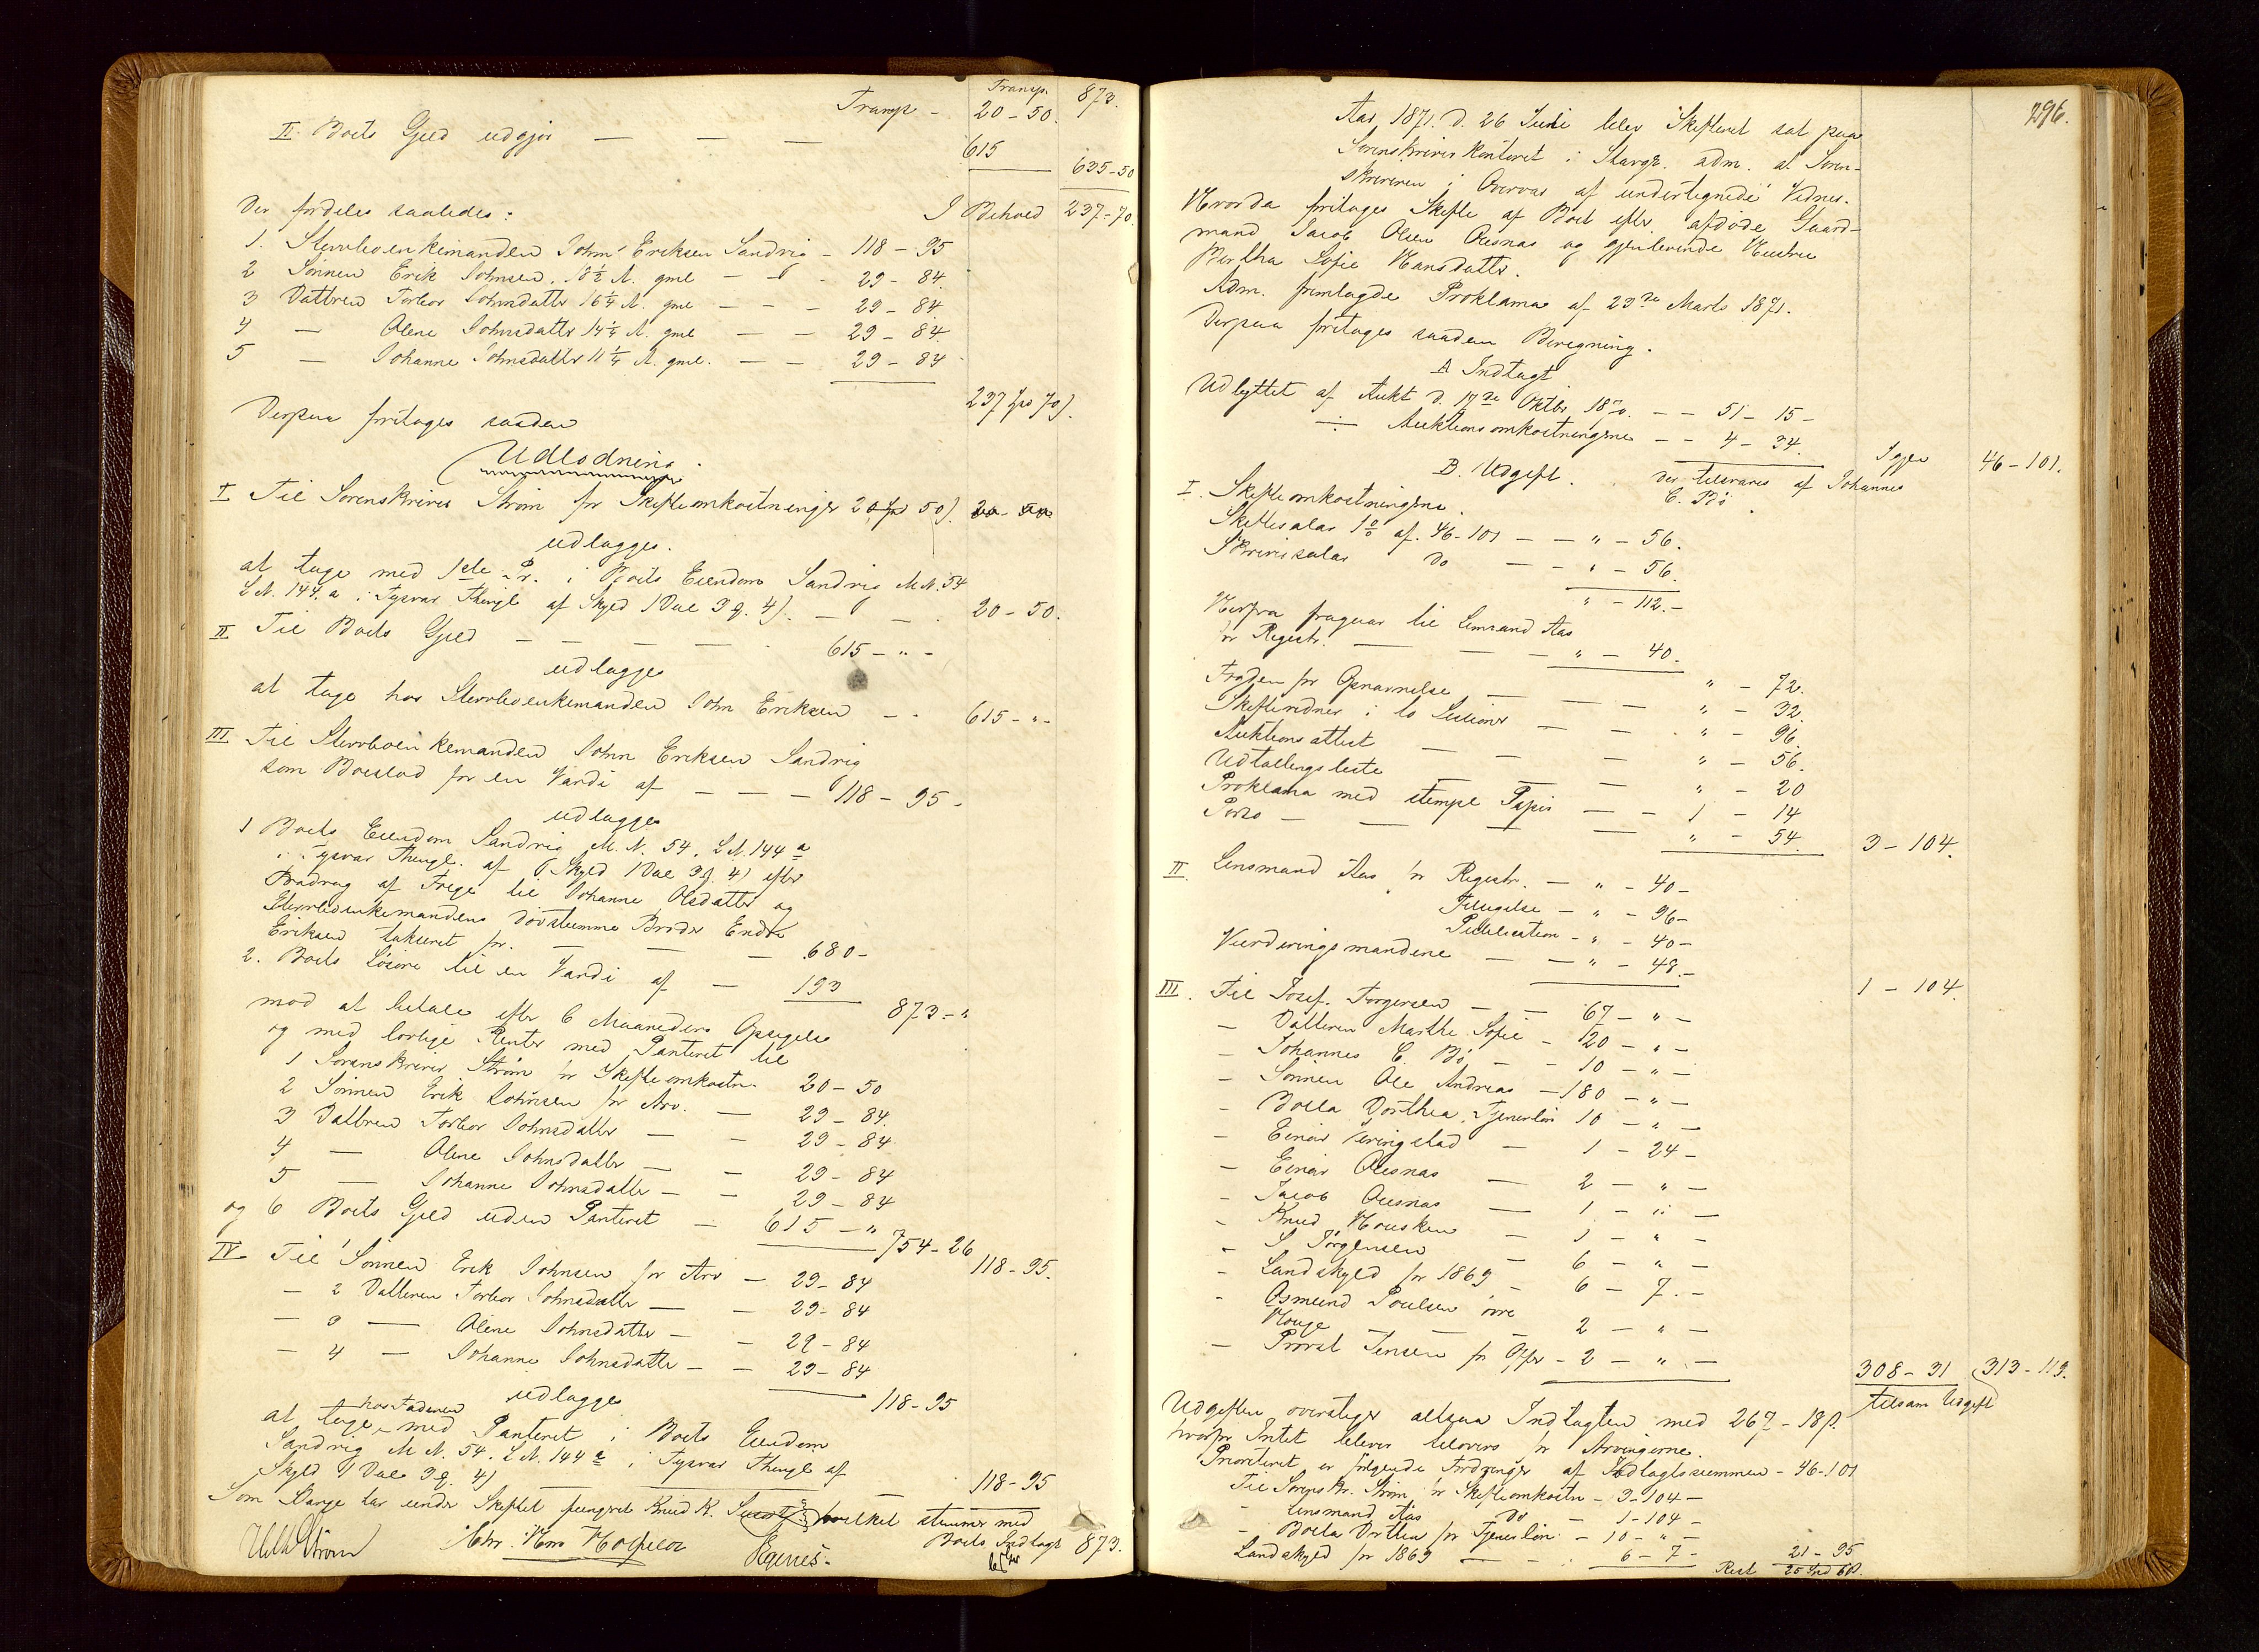 Transp. 873.
Transp - 20 - 50.
II. Boets Gjeld udgjør — — — 615
635-50
I Behold 237-70.
Der fordeles saaledes:
1. Stervboenkemanden John Eriksen Sandvig - 118 - 95
2 Sønnen Erik Johnsen, 18½ A. gml — - 29 - 84.
3 Datteren Torbor Johnsdatter 16¼ A. gml — - 29 - 84.
4 — Olene Johnsdatter 14¼ A. gml — — 29 - 84.
5 — Johanne Johnsdatter 11¼ A. gml. — — 29 - 84
237 Spd 70 s.
Derpaa foretoges saadan
Udlodning.
I Til Sorenskriver Strøm for Skifteomkostninger 20 Spd 50 s. 20 - 50
udlægges.
at tage med 1ste Pr. i Boets Eiendom Sandvig M.N. 54
L.N. 144.a i Tysvær Thingl. af Skyld 1 Dal 3 q. 4 s. — — 20 - 50.
II Til Boets Gjeld — — — — 615 - " -
udlægges
at tage hos Stervboenkemanden John Eriksen - - 615 - " -
III Til Stervboenkemanden John Eriksen Sandvig
som Boeslod for en Værdi af — — — 118 - 95 -
udlægges
1 Boets Eiendom Sandvig M.N. 54. L.N. 144 a
i Tysvær Thingl. af Skyld 1 Dal 3 q. 4 s efter
Fradrag af Føige til Johanne Olsdatter og
Stervboenkemandens døvstumme Broder Endre
Eriksen takseret for. — — — 680 -
2. Boets Løsøre til en Værdi af — 193
873 - "
mod at betale efter 6 Maaneders Opsigelse
og med lovlige Renter med Panteret til
1 Sorenskriver Strøm for Skifteomkostn. 20 - 50
2 Sønnen Erik Johnsen for Arv. — 29 - 84.
3 Datteren Torbor Johnsdatter — — 29 - 84
4 — Olene Johnsdatter — — 29 - 84
5 — Johanne Johnsdatter — — 29 - 84
og 6 Boets Gjeld uden Panteret — 615 - "
754 - 26
118 - 95.
IV Til 1 Sønnen Erik Johnsen for Arv — 29 - 84
— 2 Datteren Torbor Johnsdatter — — 29 - 84
— 3 — Olene Johnsdatter — — 29 - 84
— 4 — Johanne Johnsdatter — — 29 - 84
118 - 95
udlægges
hos Faderen
at tage med Panteret i Boets Eiendom
Sandvig M.N. 54. L.N. 144 a i Tysvær Thingl af
Skyld 1 Dal 3 q. 4 s — — 118 - 95
Som Værge har under Skiftet fungeret Knud K. hvilket stemmer med
Boets Indtægt 873.
Strøm
296.
Aar 1871. d. 26 Juni blev Skifteret sat paa
Sorenskriverkontoret i Stavgr. adm. af Soren-
skriveren i Overvær af undertegnede Vidner.
Hvorda foretoges Skifte af Boet efter afdøde Gaard-
mand Jacob Olsen Aursnæs og gjenlevende Hustru
Bertha Sofie Hansdatter.
Adm. fremlagde Proklama af 23de Marts 1871.
Derpaa foretoges saadan Beregning.
A Indtægt
Udbyttet af Aukt d. 17de Oktbr. 1870. — — 51 - 15 -
÷ Auktionsomkostningerne — — 4 - 34.
Igjen 46 - 101.
der tilsvares af Johannes
E. Bø.
B. Udgift.
I. Skifteomkostningerne.
Skiftesalær 1 % af. 46-101 — — " - 56.
Skriversalær Do — — " - 56.
" - 112. -
Herfra fragaar til Lensmand Aas
for Registr. — — — " - 40.
" - 72.
Traden for Opnævnelse — — — " - 32.
Skiftevidner i to Sessioner — — " - 96.
Auktionsattest — — — " - 56.
Udtællingsliste — — " - 20
Proklama med stempl Papir — — 1 - 14
Porto — — — — " - 54.
3 - 104.
II. Lensmand Aas for Registr. — " - 40 -
— " - 96 -
Publication - " - 40 -
Vurderingsmændene — — " - 48. -
1 - 104.
III. Til Josef Torgersen — — 67 - " -
— Datteren Marthe Sofie - 20 - " -
— Johannes E. Bø — - 10 - " -
— Sønnen Ole Andreas — 180 - " -
— Boela Dorthea, Tjenerløn 10 - " -
— Einar — 1 - 24 -
— Einar Aursnæs — 2 - " -
— Jacob Aursnæs — 1 - " -
— Knud Housken — 1 - " -
— S Jørgensen — 6 - " -
— Landskyld for 1869 - 6 - 7. -
— Osmund Poulsen øvre
Houge — — 2 - " -
— Provst Jensen for Offer - 2 - " -
308 - 31 313 - 113.
tilsam Udgift
Udgiften overstiger altsaa Indtægten med 267 - 18 s.
hvorfor Intet bliver tilovers for Arvingerne.
Prioriteret er følgende Fordringer af Indtægtssummen - 46-101
Til Sorenskr. Strøm for Skifteomkostn - 3 - 104 -
— Lensmand Aas Do — 1 - 104 -
— Boela Dorthea for Tjenerløn - 10 - " -
Landskyld for 1869 — — 6 - 7 -
21 - 95
Rest 25 Spd 6 s.